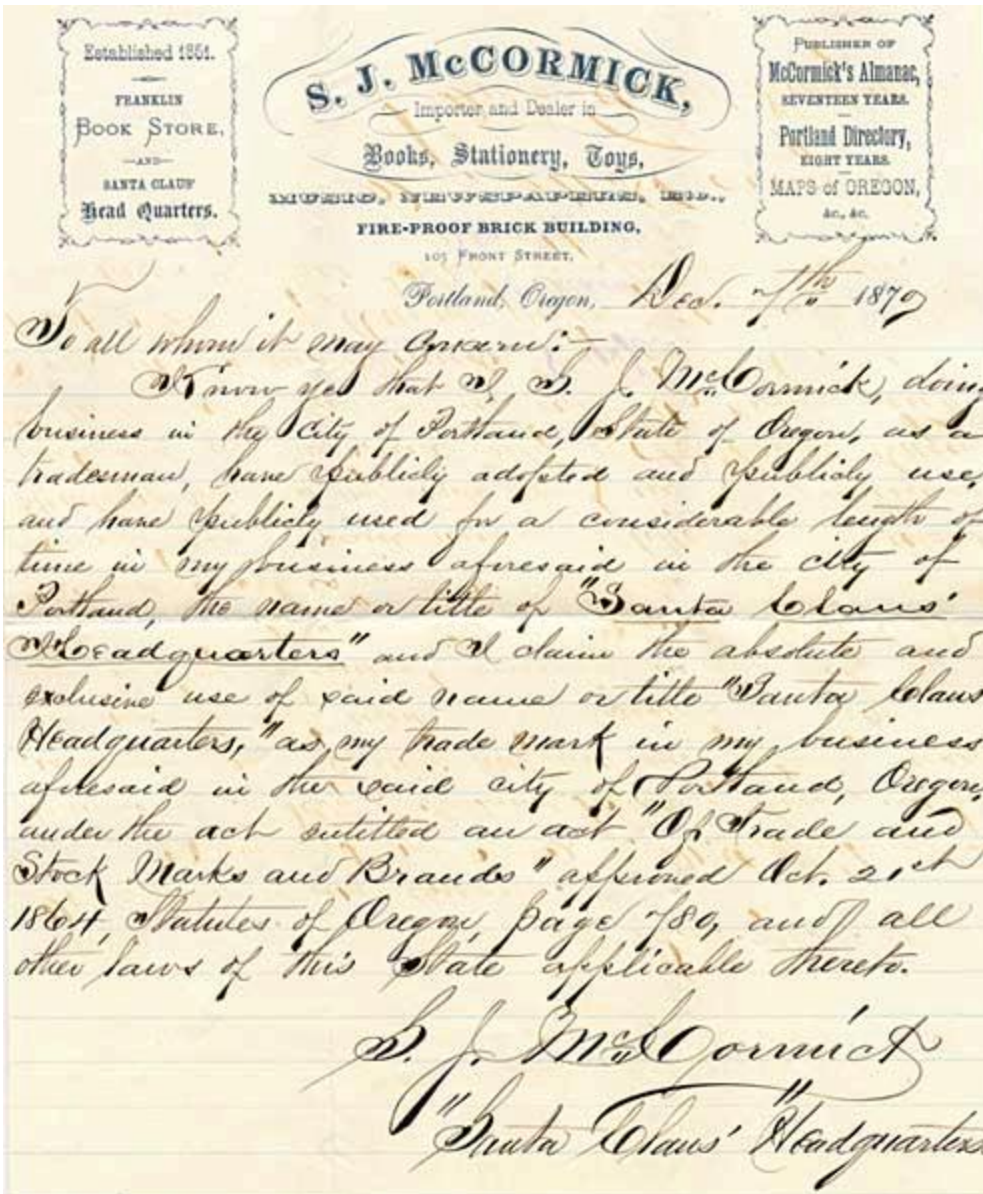 Established 1851.
FRANKLIN
BOOK STORE,
—AND—
SANTA CLAUS'
Head Quarters.
S. J. McCORMICK,
Importer and Dealer in
Books, Stationery, Toys,
MUSIC, NEWSPAPERS, Etc.,
FIRE-PROOF BRICK BUILDING,
105 FRONT STREET,
PUBLISHER OF
McCormick's Almanac,
SEVENTEEN YEARS.
Portland Directory,
EIGHT YEARS.
MAPS of OREGON,
&c., &c.
Portland, Oregon, Dec. 7th 1870
To all whom it may concern:—
Know ye that I, S. J. McCormick, doing
business in the City of Portland, State of Oregon, as a
tradesman, have publicly adopted and publicly use,
and have publicly used for a considerable length of
time in my business aforesaid in the city of
Portland, the name or title of "Santa Claus'
Headquarters" and I claim the absolute and
exclusive use of said name or title "Santa Claus
Headquarters," as my trade mark in my business
aforesaid in the said city of Portland, Oregon,
under the act entitled an act "Of Trade and
Stock Marks and Brands" approved Oct. 21st
1864, Statutes of Oregon, page 780, and all
other laws of this State applicable thereto.
S. J. McCormick
"Santa Claus' Headquarters"